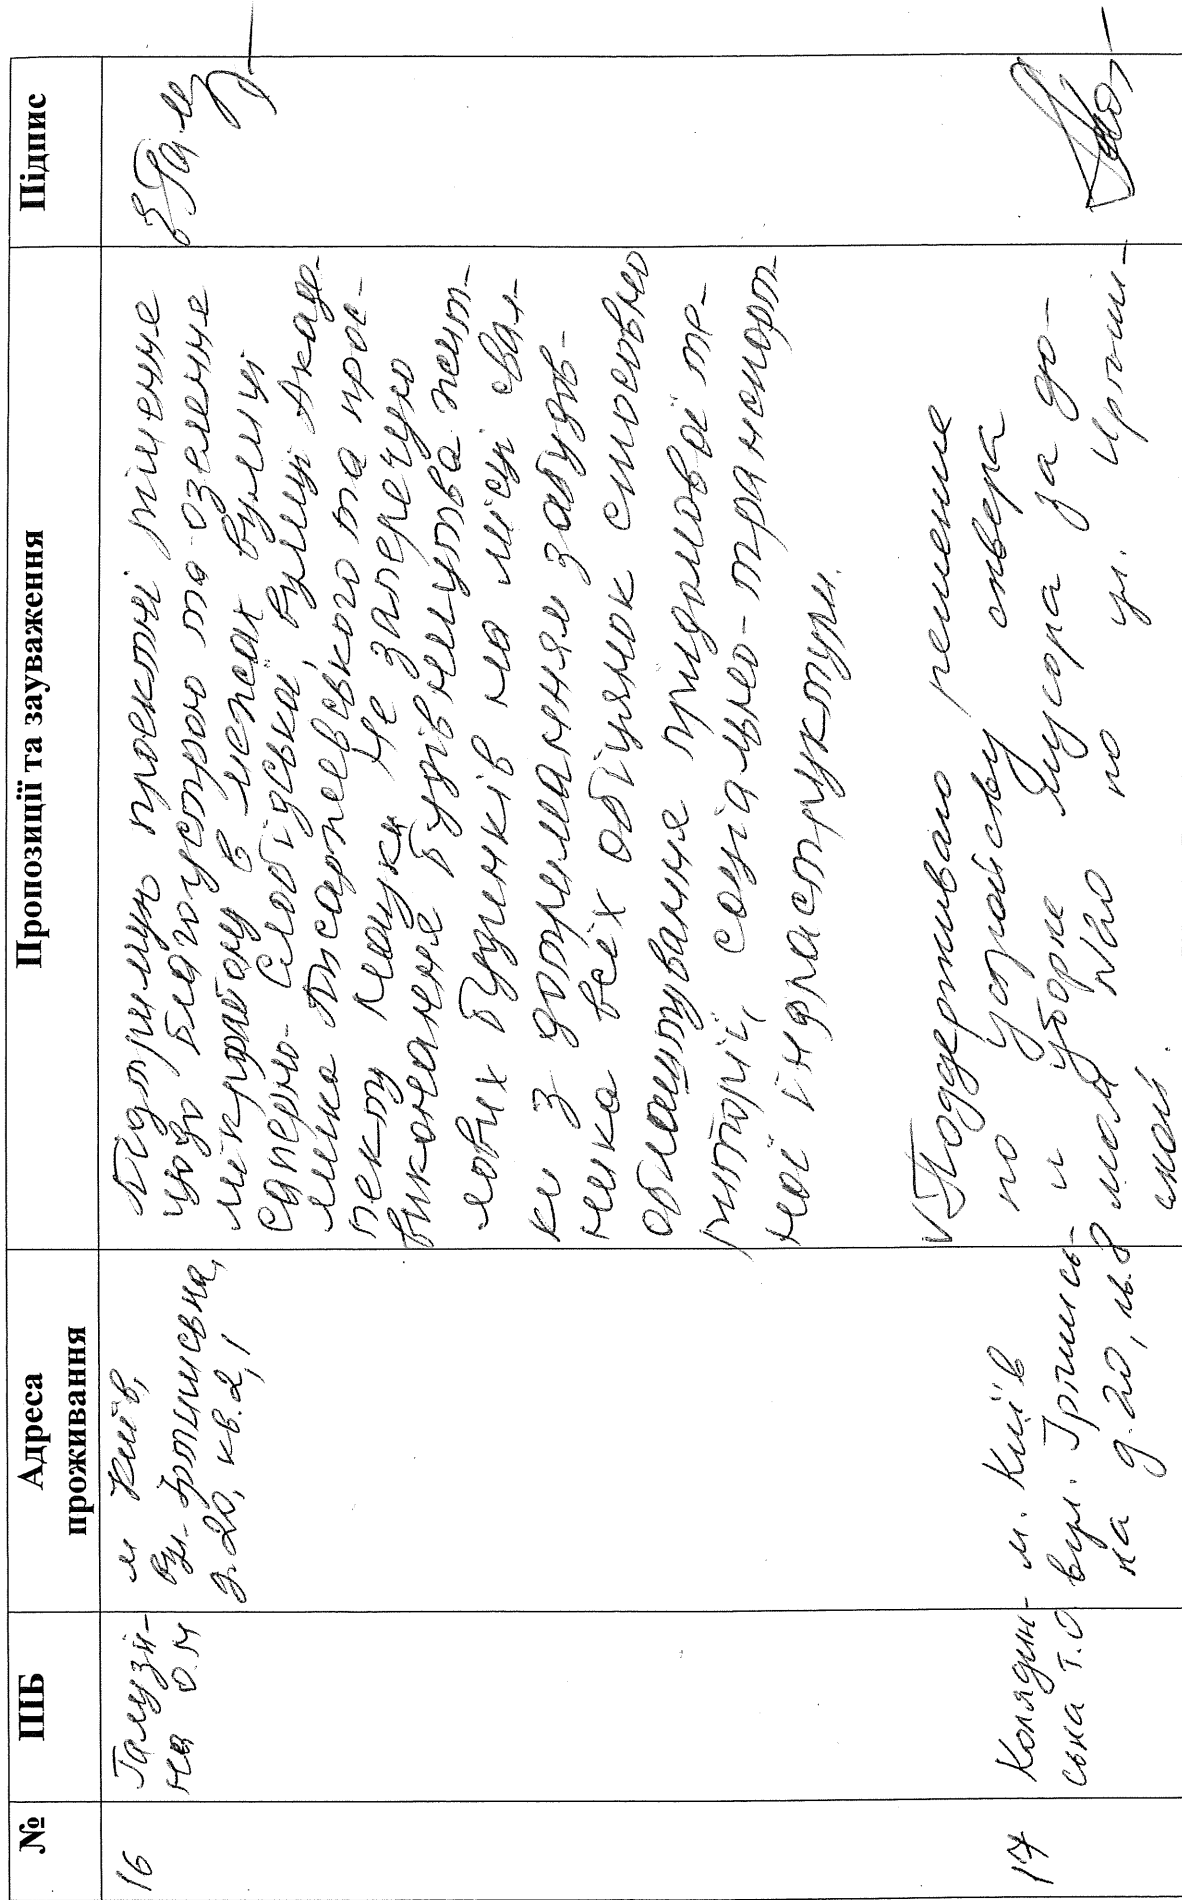 № ПІБ Адреса проживання Пропозиції та зауваження Підпис
16 Галузи-
на О.М
м Київ,
вул. Ірпінська,
д. 20, кв. 2,1
Підтримую проектні рішення
щодо благоустрою та озелення
мікрорайону в межах вулиці
Саперно-Слобідської, вулиці Акаде-
міка Писаржевського та прос-
пекту Науки. Не заперечую
виконання будівництва жит-
лових будинків на місці свал-
ки з дотриманням забудов-
ника всіх обіцянок стосовно
облаштування придомової те-
риторії, соціально-транспорт-
ної інфраструктури.
17 Колядин-
ська Т.О
м. Київ
вул. Ірпінсь-
ка д. 20, кв. 8
Поддерживаю решение
по устройству сквера
и уборке мусора за до-
мом №20 по ул. Ирпин-
ской.